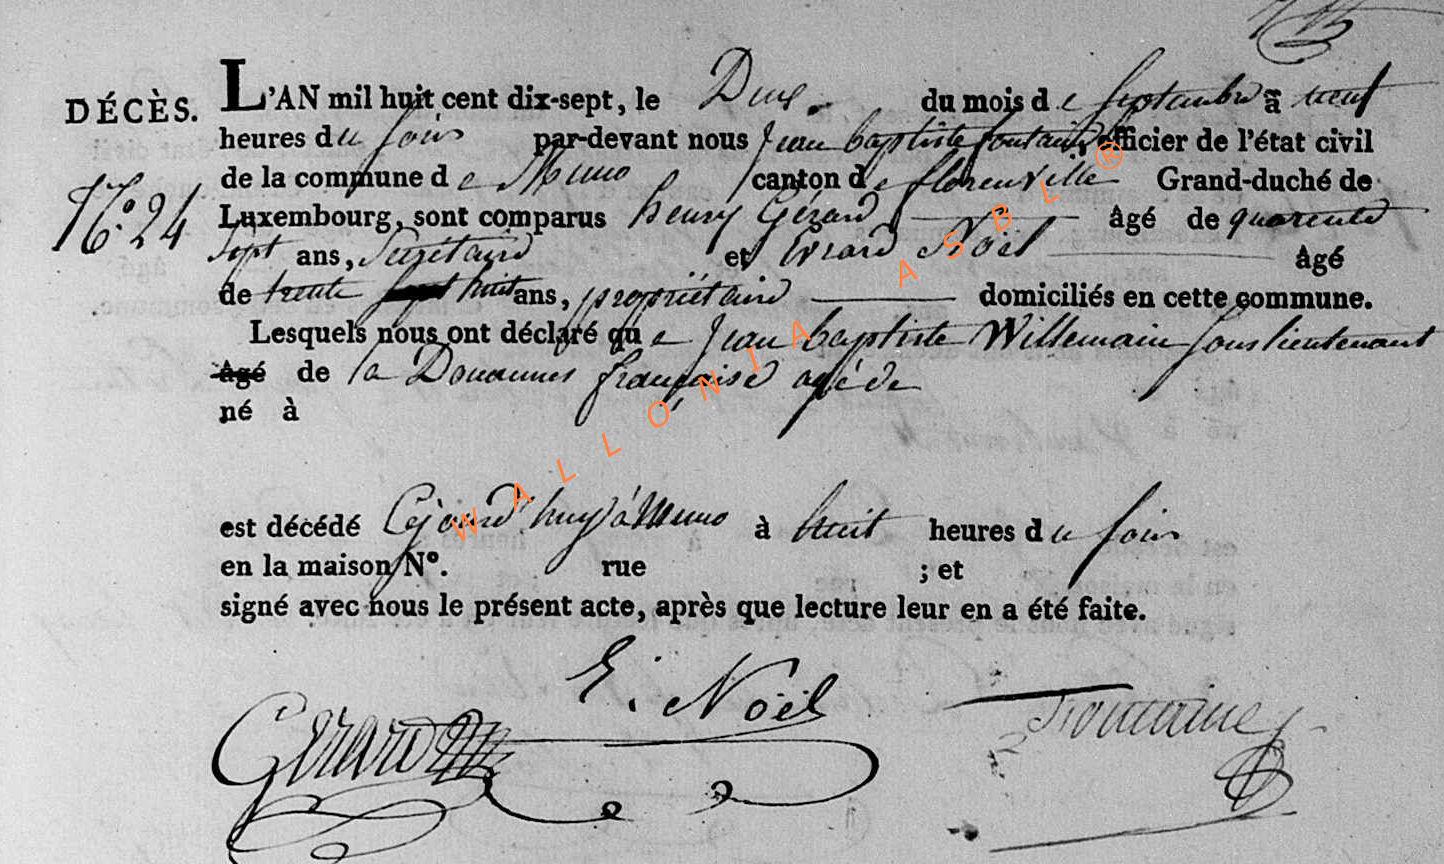 DÉCÈS. L'AN mil huit cent dix-sept, le Deux du mois de Septembre à neuf
heures du soir par-devant nous Jean baptiste fontaine officier de l'état civil
de la commune de Muno canton de florenville Grand-duché de
N.º 24 Luxembourg, sont comparus henry Gérard âgé de quarente
Sept ans, Secrétaire et Evrard Noël âgé
de trente huit ans, propriétaire domiciliés en cette commune.
Lesquels nous ont déclaré que Jean baptiste Willemain Sous lieutenant
âgé de la Douannes française agé de
né à
est décédé Cejourd'huy à Muno à huit heures du soir
en la maison Nº. rue ; et
signé avec nous le présent acte, après que lecture leur en a été faite.
E. Noël
Gérard
Fontaine
WALLONIA ASBL ®